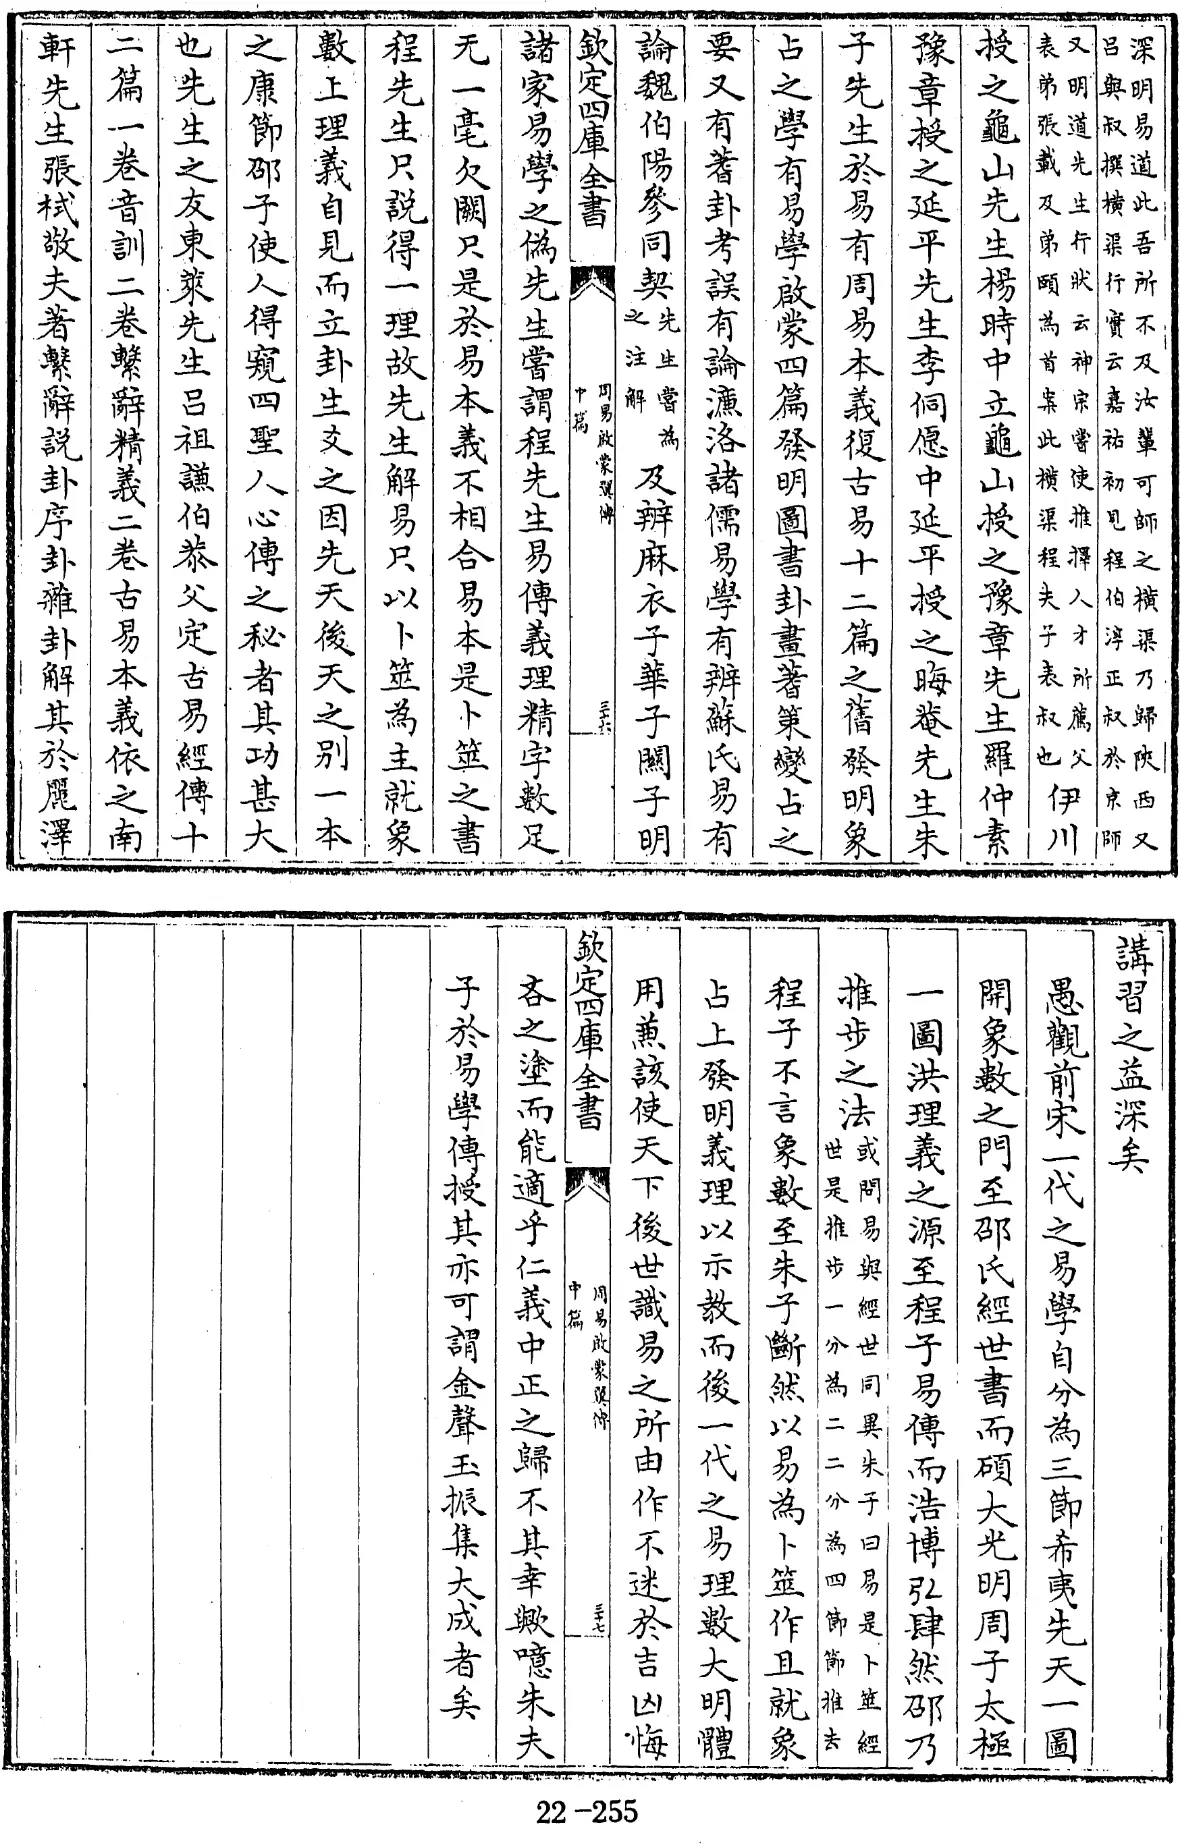 深明易道此吾所不及汝輩可師之橫渠乃歸陝西又
呂與叔撰橫渠行實云嘉祐初見程伯淳正叔於京師
又明道先生行狀云神宗嘗使推擇人才所薦父
表弟張載及弟頤為首案此橫渠程夫子表叔也
伊川
授之龜山先生楊時中立龜山授之豫章先生羅仲素
豫章授之延平先生李侗愿中延平授之晦菴先生朱
子先生於易有周易本義復古易十二篇之舊發明象
占之學有易學啟蒙四篇發明圖書卦畫蓍策變占之
要又有蓍卦考誤有論濂洛諸儒易學有辨蘇氏易有
論魏伯陽參同契
先生嘗為
之注解
及辨麻衣子華子關子明
欽定四庫全書
周易啟蒙翼傳
中篇
三十六
諸家易學之偽先生嘗謂程先生易傳義理精字數足
无一毫欠闕只是於易本義不相合易本是卜筮之書
程先生只説得一理故先生解易只以卜筮為主就象
數上理義自見而立卦生爻之因先天後天之別一本
之康節邵子使人得窺四聖人心傳之秘者其功甚大
也先生之友東萊先生呂祖謙伯恭父定古易經傳十
二篇一卷音訓二卷繫辭精義二卷古易本義依之南
軒先生張栻敬夫著繫辭説卦序卦雜卦解其於麗澤
講習之益深矣
愚觀前宋一代之易學自分為三節希夷先天一圖
開象數之門至邵氏經世書而碩大光明周子太極
一圖洪理義之源至程子易傳而浩博弘肆然邵乃
推步之法
或問易與經世同異朱子曰易是卜筮經
世是推步一分為二二分為四節節推去
程子不言象數至朱子斷然以易為卜筮作且就象
占上發明義理以示教而後一代之易理數大明體
用兼該使天下後世識易之所由作不迷於吉凶悔
欽定四庫全書
周易啟蒙翼傳
中篇
三十七
吝之塗而能適乎仁義中正之歸不其幸歟噫朱夫
子於易學傳授其亦可謂金聲玉振集大成者矣
22-255